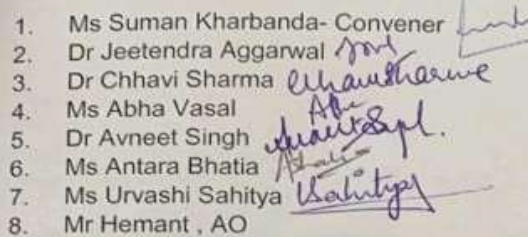 1. Ms Suman Kharbanda- Convener
2. Dr Jeetendra Aggarwal
3. Dr Chhavi Sharma Chhavi Sharma
4. Ms Abha Vasal
5. Dr Avneet Singh
6. Ms Antara Bhatia
7. Ms Urvashi Sahitya USahitya
8. Mr Hemant , AO